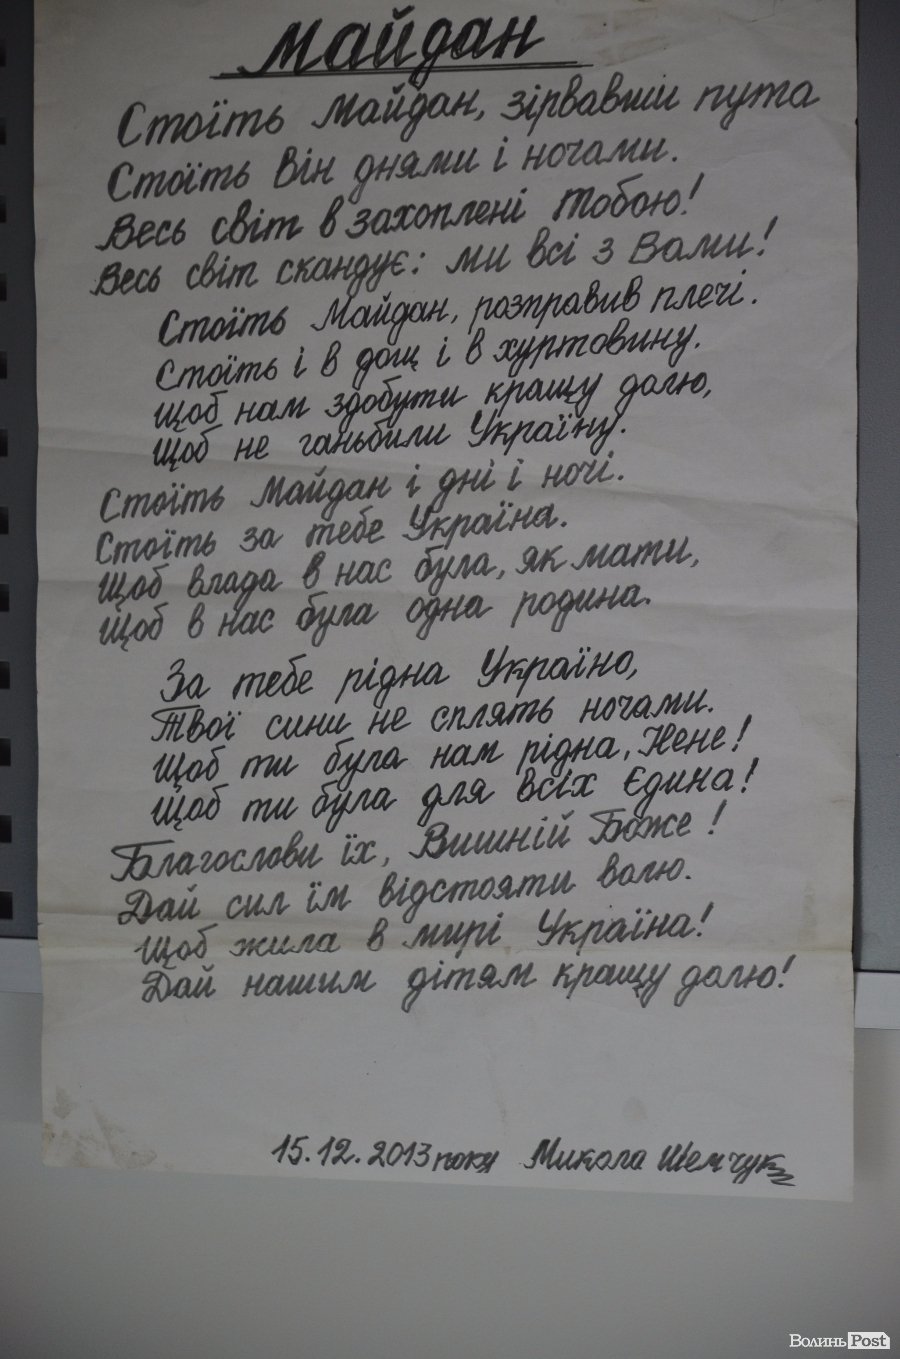 Майдан
Стоїть Майдан, зірвавши пута
Стоїть Він днями і ночами.
Весь світ в захоплені Тобою!
Весь світ скандує: ми всі з Вами!
Стоїть Майдан, розправив плечі.
Стоїть і в дощ і в хуртовину.
Щоб нам здобути кращу долю,
Щоб не ганьбили Україну.
Стоїть Майдан і дні і ночі.
Стоїть за тебе Україна.
Щоб влада в нас була, як мати,
Щоб в нас була одна родина.
За тебе рідна Україно,
Твої сини не сплять ночами.
Щоб ти була нам рідна, Нене!
Щоб ти була для всіх Єдина!
Благослови їх, Вишній Боже!
Дай сил їм відстояти волю.
Щоб жила в мирі Україна!
Дай нашим дітям кращу долю!
15.12.2013 року Микола Шемчук
Волинь Post